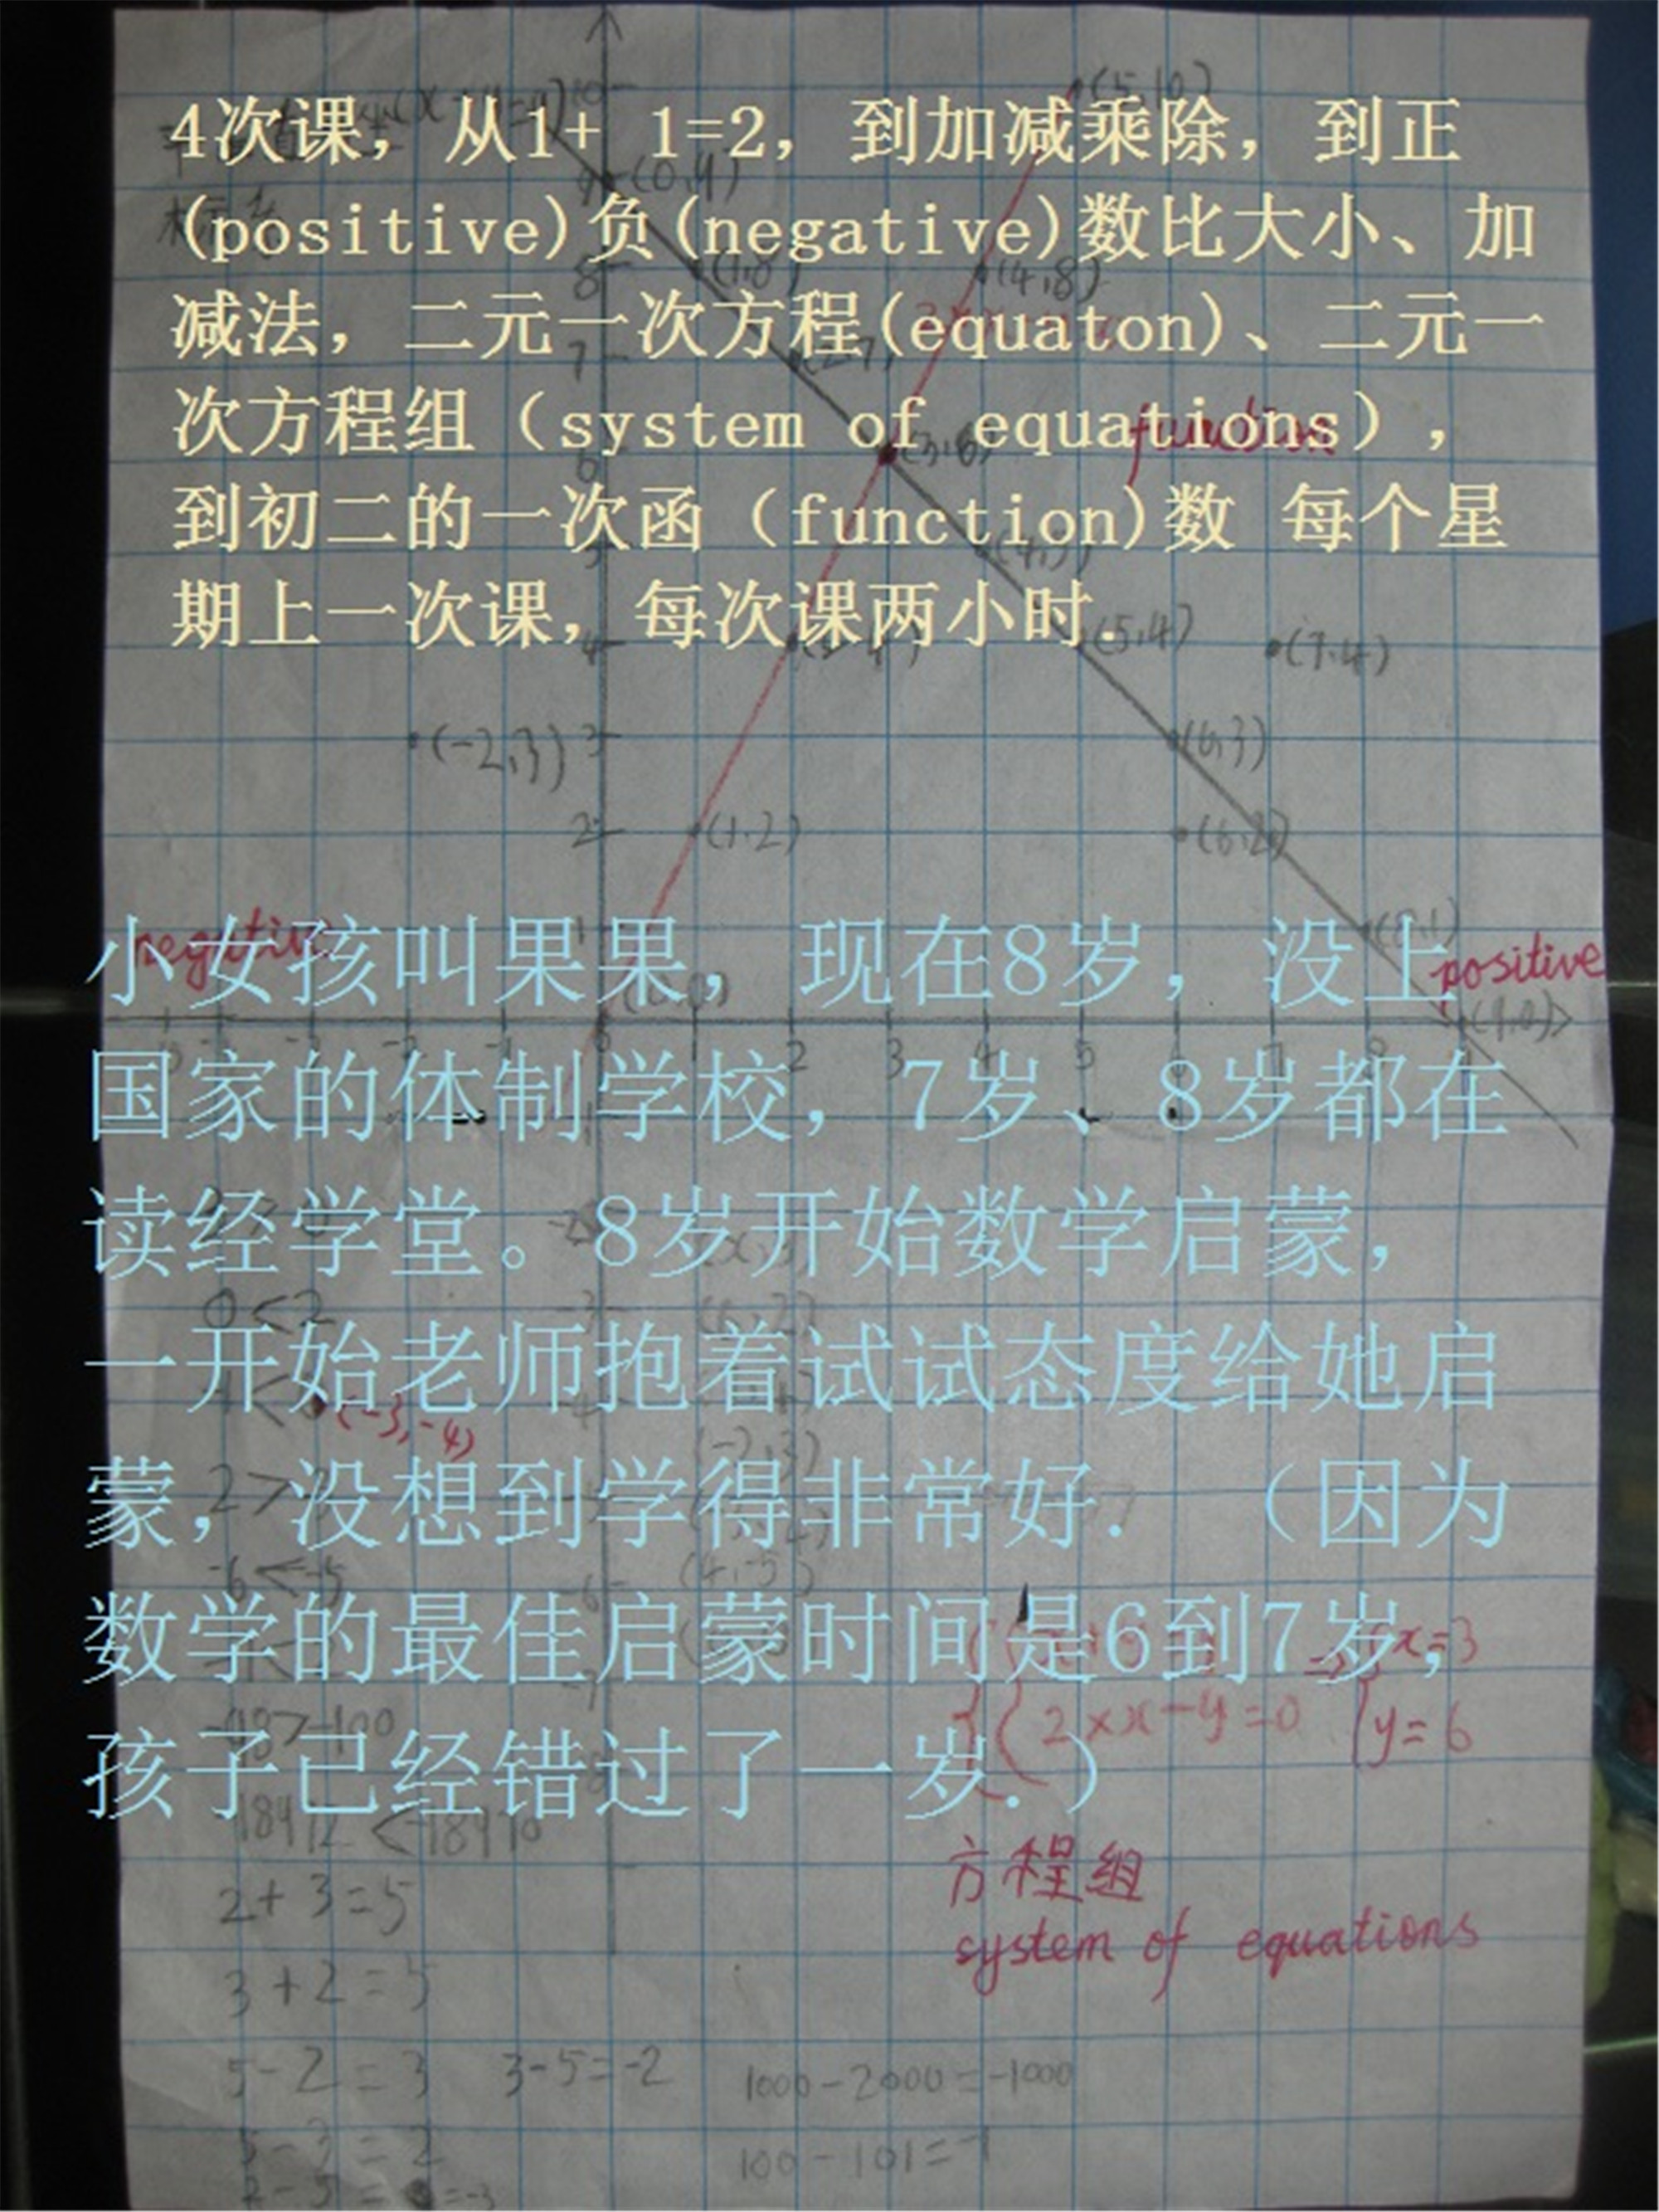 4次课，从1+ 1=2，到加减乘除，到正
(positive)负(negative)数比大小、加
减法，二元一次方程(equaton)、二元一
次方程组（system of equations），
到初二的一次函（function)数 每个星
期上一次课，每次课两小时.
小女孩叫果果，现在8岁，没上
国家的体制学校，7岁、8岁都在
读经学堂。8岁开始数学启蒙，
一开始老师抱着试试态度给她启
蒙，没想到学得非常好. （因为
数学的最佳启蒙时间是6到7岁，
孩子已经错过了一岁.）
(5,10)
(4,8)
function
(5,4)
(7,4)
(-2,3) 3
(6,3)
2 (1,2)
(6,2)
negative
positive
(9,0)
0<2
(-3,-4)
-6<-5
x=3
2×x-y=0 y=6
方程组
system of equations
2+3=5
3+2=5
5-2=3 3-5=-2 1000-2000=-1000
5-3=2 100-101=-1